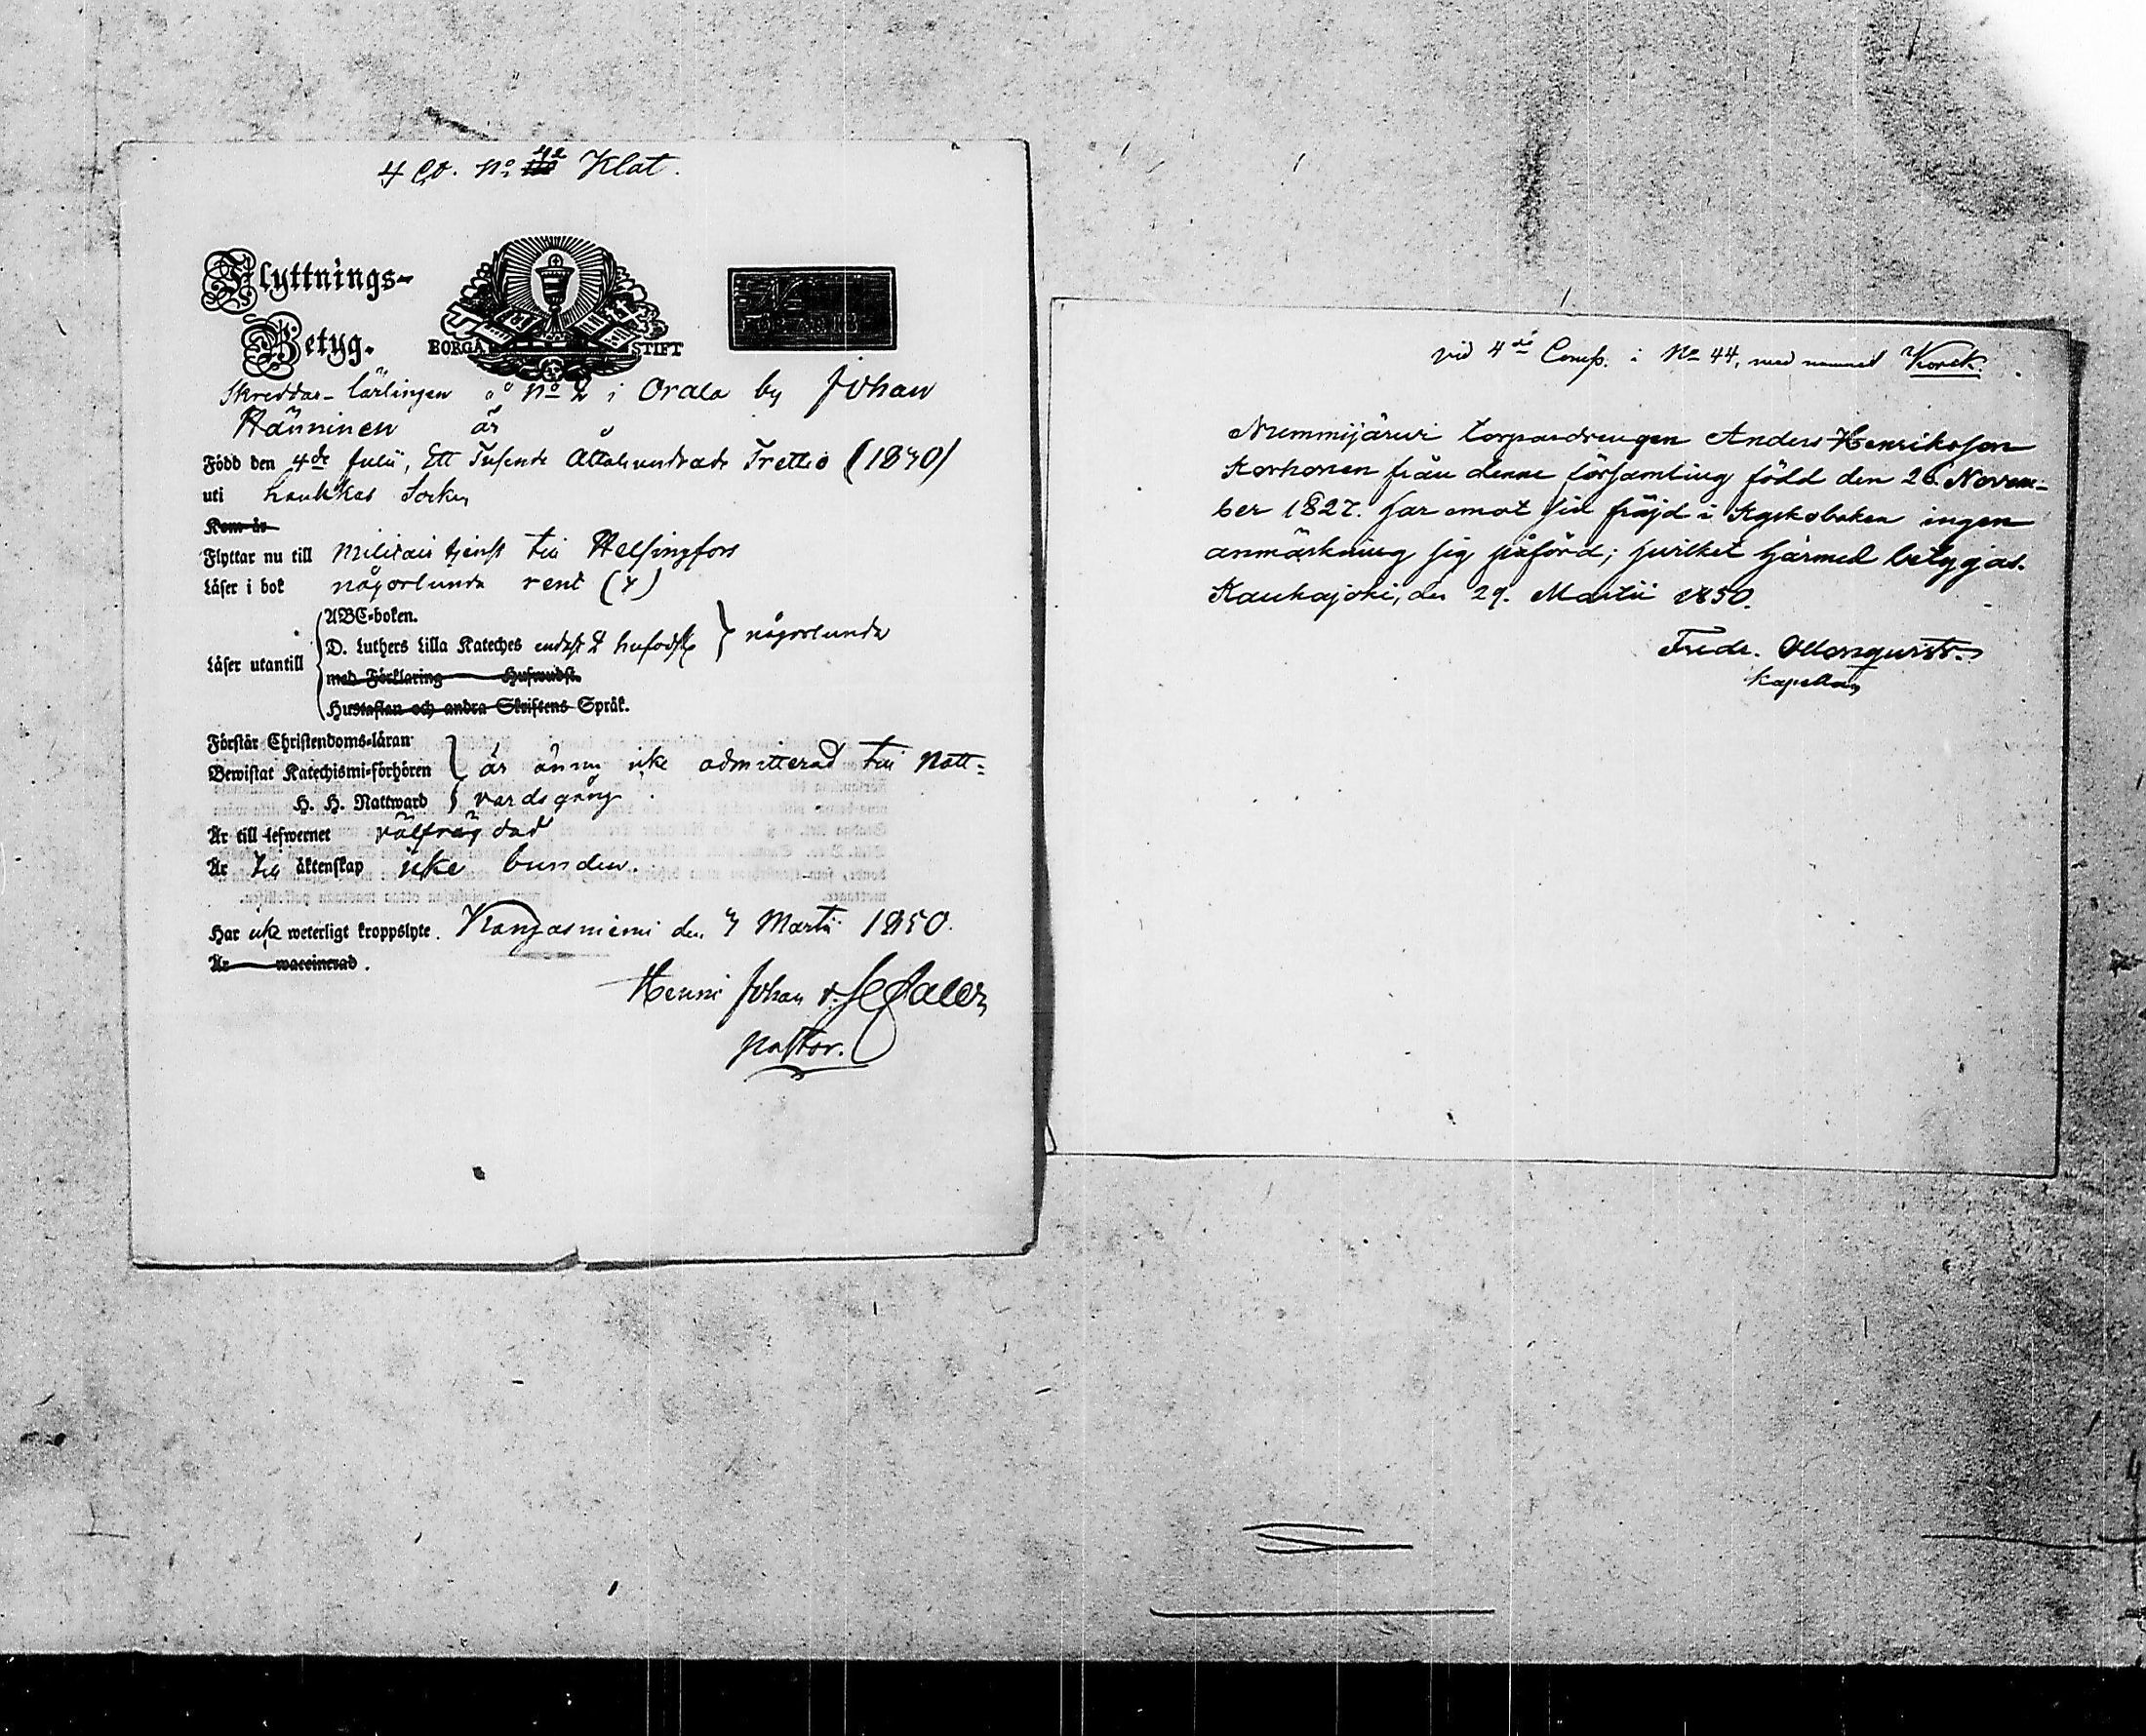 4 Co. No 42 Klat.
Flyttnings-
Betyg.
BORGÅ STIFT
Skreddar-lärlingen å No 2 i Orala by Johan
Hänninen är
Född den 4de Julii, Ett Tusende Åttahundrade Trettio (1830)
uti Haukkas Socken
Kom år
Flyttar nu till Militair tjenst till Helsingfors
Läser i bok någorlunda rent (x)
Läser utantill
ABC-boken.
D. Luthers Lilla Kateches endast 2 hufvdst. någorlunda
med Förklaring Hufwudst.
Hustaflan och andra Skriftens Språk.
Förstår Christendoms-läran
Bewistat Katechismi-förhören är ännu icke admitterad till Natt-
H. H. Nattward vardsgång
Är till lefwernet välfräjdad
Är till äktenskap icke bunden.
Har icke weterligt kroppslyte. Kangasniemi den 7 Martii 1850.
Är waccinerad.
Henric Johan
pastor.
vid 4de Comp. i No 44, med namnet Korck.
Nummijärvi torpardrengen Anders Henriksson
Korhonen från denne församling född den 26 Novem-
ber 1827. har emot sin fräjd i Kyrkoboken ingen
anmärkning sig påförd; hvilket härmed betygas.
Kauhajoki, den 29. Martii 1850.
Fredr. Ollonqvist.
Kapellan